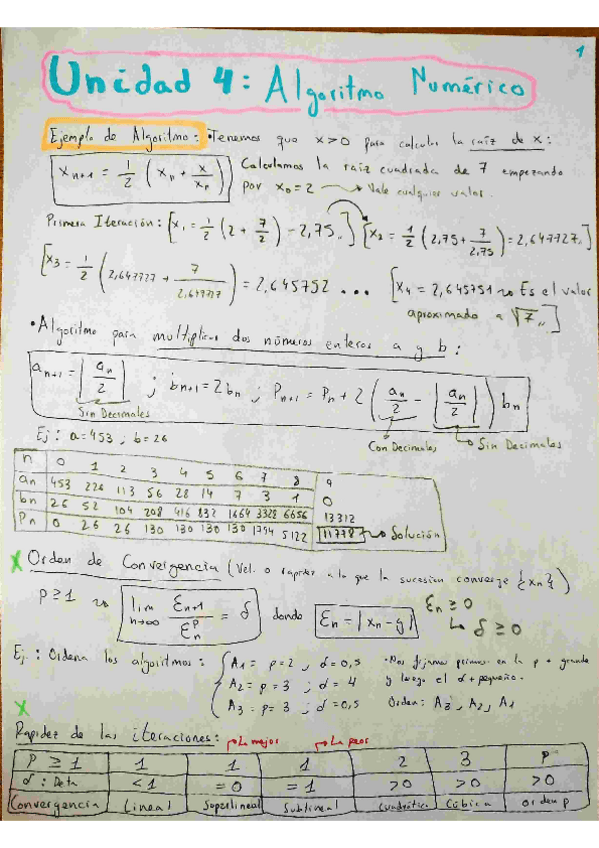 1
Unidad 4: Algoritmo Numérico
Ejemplo de Algoritmo: • Tenemos que x>0 para calcular la raíz de x:
x_{n+1} = 1/2 (x_n + x/x_n) Calculamos la raíz cuadrada de 7 empezando
por x_0=2 → Vale cualquier valor.
Primera Iteración: [x_1 = 1/2 (2 + 7/2) - 2,75,,] [x_2 = 1/2 (2,75 + 7/2,75) = 2,647727,,]
[x_3 = 1/2 (2,647727 + 7/2,647727) = 2,645752 ... [x_4 = 2,645751 → Es el valor
aproximado a √7,,]
• Algoritmo para multiplicar dos números enteros a y b:
a_{n+1} = ⌊a_n/2⌋ ; b_{n+1} = 2b_n ; P_{n+1} = P_n + 2 (a_n/2 - ⌊a_n/2⌋) b_n
Sin Decimales Con Decimales Sin Decimales
Ej: a=453 ; b=26
n 0 1 2 3 4 5 6 7 8 9
a_n 453 226 113 56 28 14 7 3 1 0
b_n 26 52 104 208 416 832 1664 3328 6656 13312
P_n 0 26 26 130 130 130 130 1794 5122 11778 → Solución
x Orden de Convergencia (Vel. o rapidez a la que la sucesion converge {x_n})
p≥1 → lim n→∞ ε_{n+1}/ε_n^p = δ donde ε_n = |x_n - y| ε_n ≥ 0
↳ δ ≥ 0
Ej.: Ordena los algoritmos: { A_1 = p=2 , δ=0,5 • Nos fijamos primero en la p + grande
A_2 = p=3 ; δ=4 y luego el δ + pequeño.
A_3 = p=3 ; δ=0,5 Orden: A_3, A_2, A_1
x
Rapidez de las iteraciones: → La mejor → La peor
P ≥ 1 1 1 1 2 3 P
δ: Delta <1 =0 =1 >0 >0 >0
Convergencia Lineal Superlineal Sublineal Cuadrática Cúbica Orden p